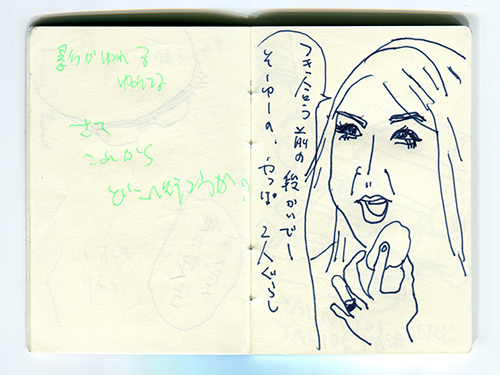 影がゆれる
ゆれてる
さて
これから
どこに行こうか?
つき合う前の 段かいでー
そーゆーの、やっぱ 2人ぐらし